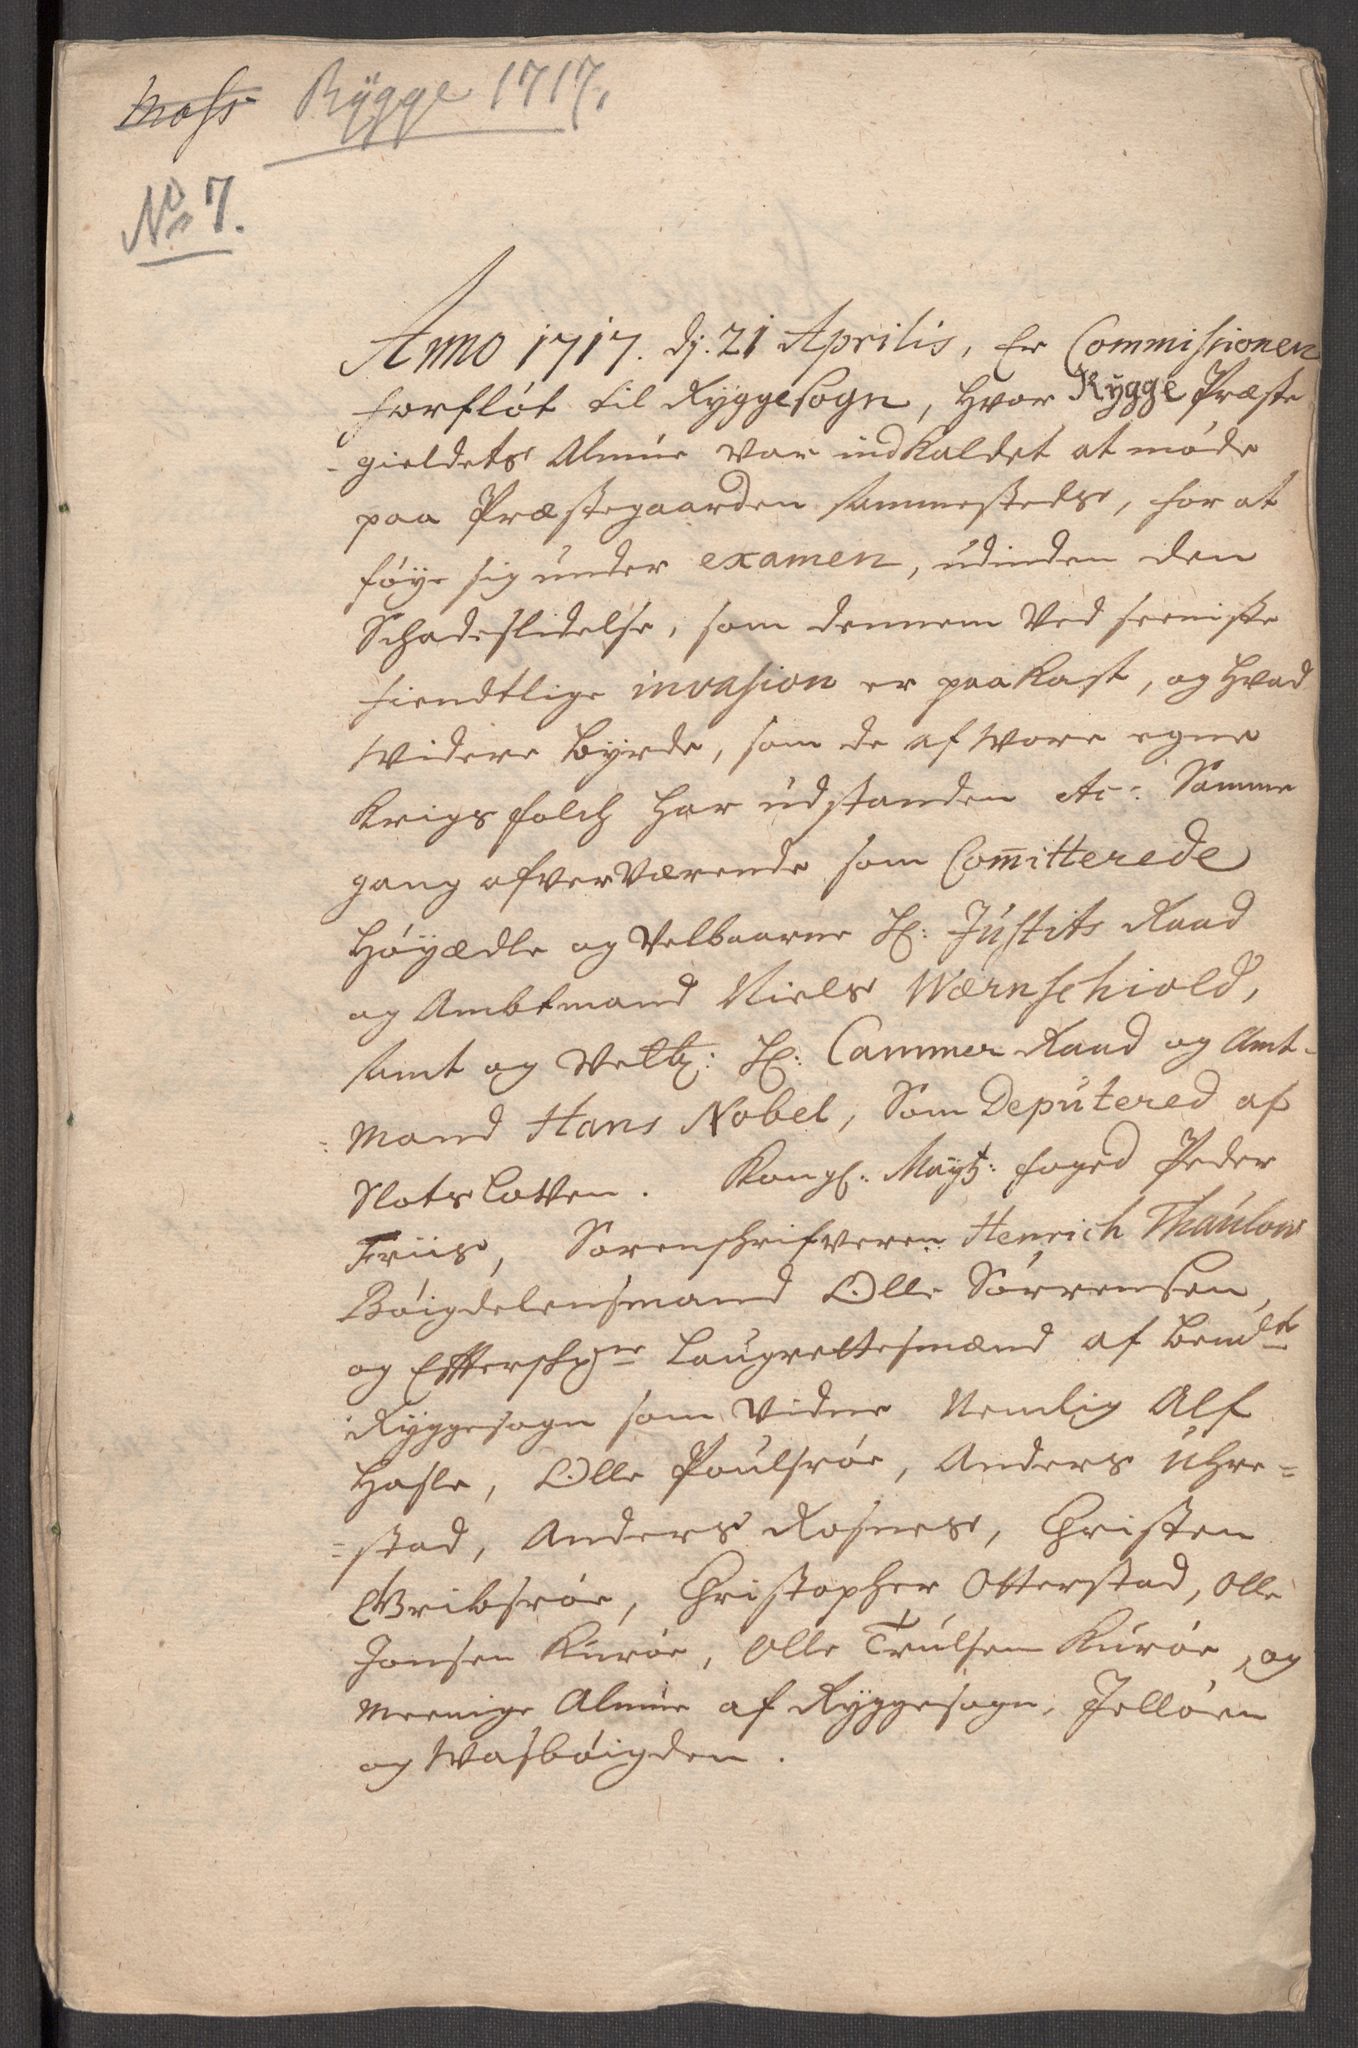 Moss Rÿgge 1717.
No 7.
Anno 1717. dj. 21 Aprilis, Er Commissionen
forfløt til Ryggesogn, hvor Rygge Præste
-gieldets Almue var indkaldet at møde
paa Præstegaarden sammesteds, for at
føye sig under examen, udinden den
Schadeslidelse, som dennem ved seeniste
fiendtlige invasion er paakast, og hvad
widere byrde, som de af wore egne
Krigsfolch har udstanden etc: Samme
gang afverværende som Com̅itterede
Høyædle og Velbaarne H: Justits Raad
og Ambtmand Niels Wærnschiold,
samt og Velb: H: Cammer Raad og Amt-
=mand Hans Nobel, Som Deputered af
Slotslowen. Kongl: Mayts: foged Peder
Friis, Sorenschrifveren Henrich Thaulow
Bøigdelensmand Olle Sørrensen,
og Effterschne Laugrettesmænd af bemdte
Ryggesogn som vidne Nemlig Alf
Hasle, Olle Poulsrøe, Anders Uhre=
=stad, Anders Rosnes, Christen
Gribsrøe, Christopher Otterstad, Olle
Jonsen Kurøe, Olle Trulsen Kurøe, og
meenige Almue af Ryggesogn, Jelløen
og Wasbøigden.